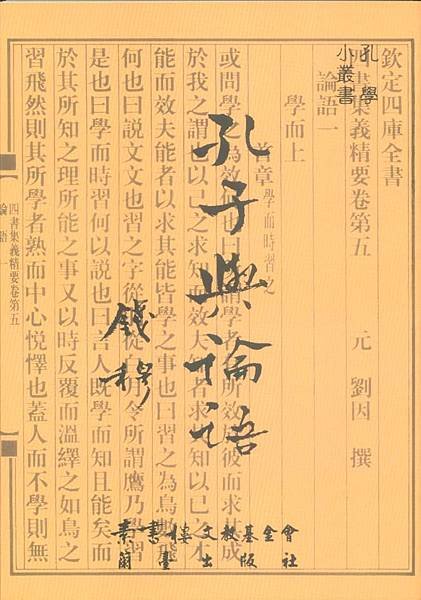 孔學
小叢書
孔子與論語
錢穆
素書樓文教基金會
蘭臺出版社
欽定四庫全書
四書集義精要卷第五
元 劉因 撰
論語一
學而上
首章學而時習之
或問學之為效何也曰所謂學者有所效於彼而求其成
於我之謂也以己之未知而效夫知者以求其知以己之未
能而效夫能者以求其能皆學之事也曰習之為鳥數飛
何也曰說文文也習之字從羽從白月令所謂鷹乃學習
是也曰學而時習何以說也曰言人既學而知且能矣而
於其所知之理所能之事又以時反覆而溫繹之如鳥之
習飛然則其所學者熟而中心悅懌也蓋人而不學則無
四書集義精要卷第五
論語一